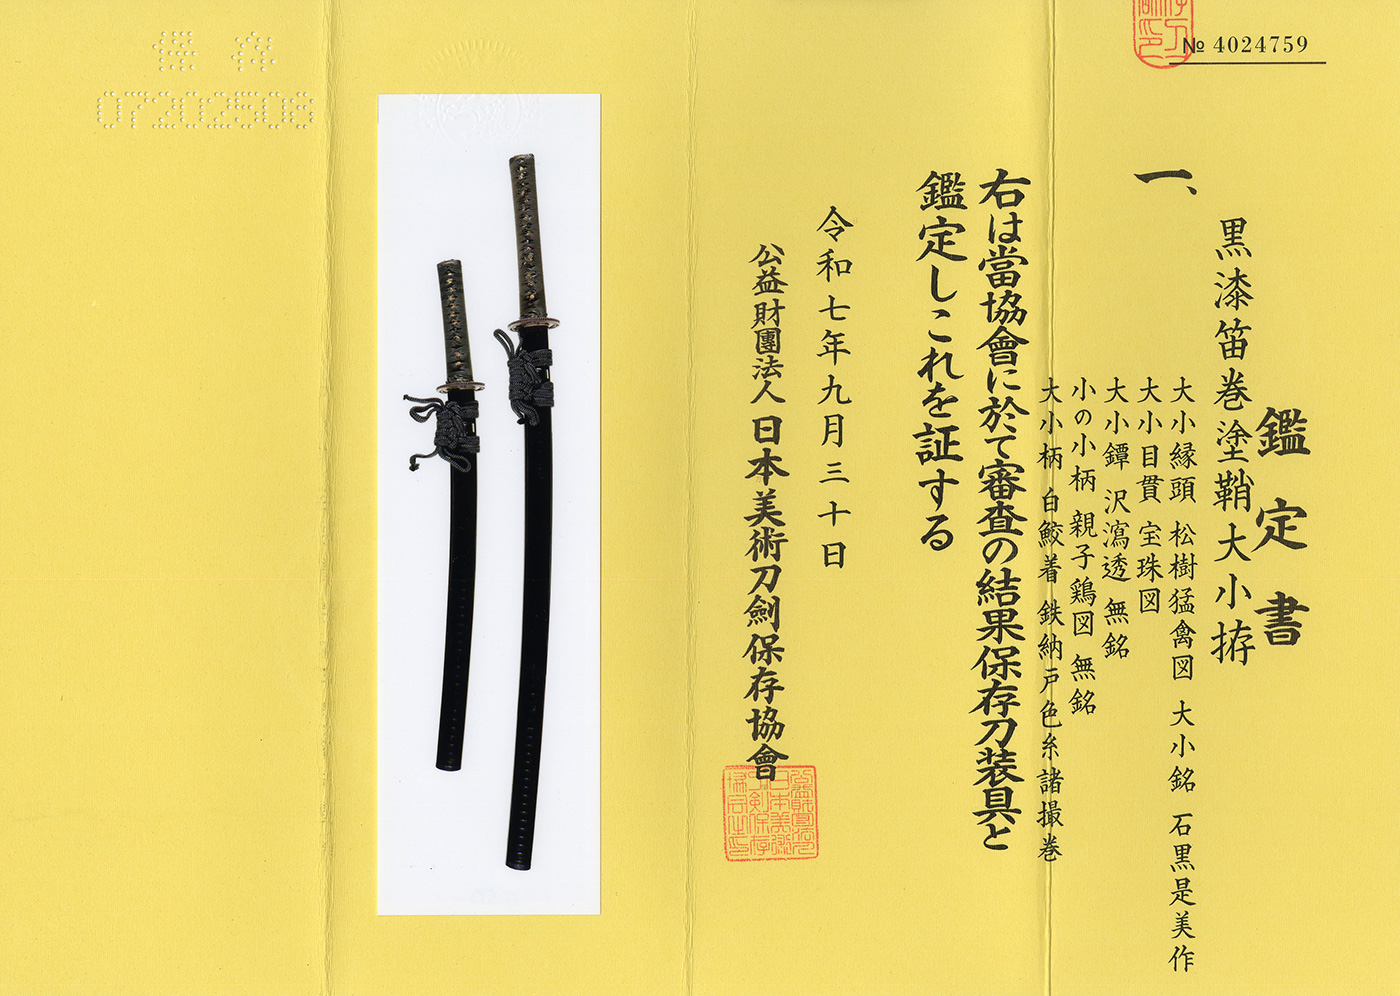 № 4024759
鑑定書
一、
黒漆笛巻塗鞘大小拵
大小縁頭 松樹猛禽図 大小銘 石黒是美作
大小目貫 宝珠図
大小鐔 沢瀉透 無銘
小の小柄 親子鶏図 無銘
大小柄 白鮫着 鉄納戸色糸諸撮巻
右は當協會に於て審査の結果保存刀装具と
鑑定しこれを証する
令和七年九月三十日
公益財團法人 日本美術刀劍保存協會
保存
07202508